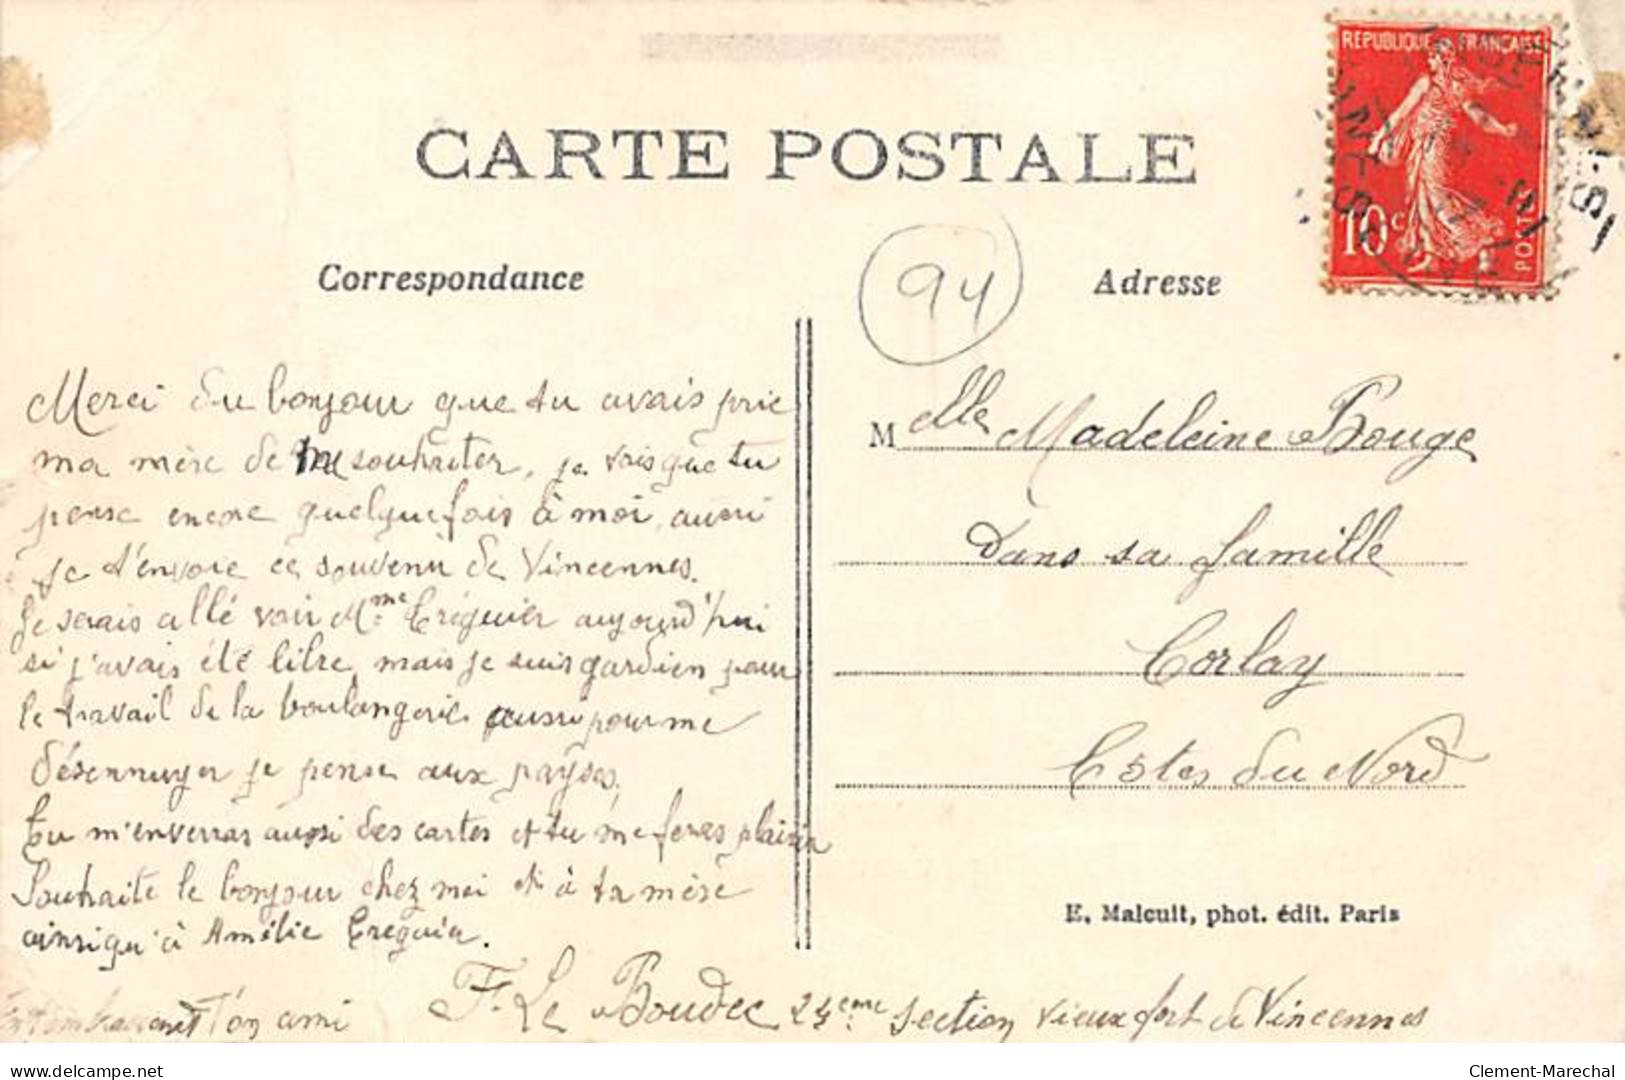 REPUBLIQUE FRANÇAISE
10c
POSTES
CARTE POSTALE
Correspondance
94
Adresse
Merci du bonjour que tu avais prié
ma mère de me souhaiter, je vois que tu
pense encore quelquefois à moi, aussi
je t'envoie ce souvenir de Vincennes.
Je serais allé voir Mme Tréguier aujourd'hui
si j'avais été libre, mais je suis gardien pour
le travail de la boulangerie, aussi pour me
désennuyer je pense aux payses.
Tu m'enverras aussi des cartes et tu me feras plaisir
Souhaite le bonjour chez moi et à ta mère
ainsi qu'à Amélie Treguier.
T'on ami
F. Le Boudec 24eme Section vieux fort de Vincennes
Melle Madeleine Bouge
Dans sa famille
Corlay
Côtes du Nord
E. Malcuit, phot. édit. Paris
delcampe.net
Clement-Marechal